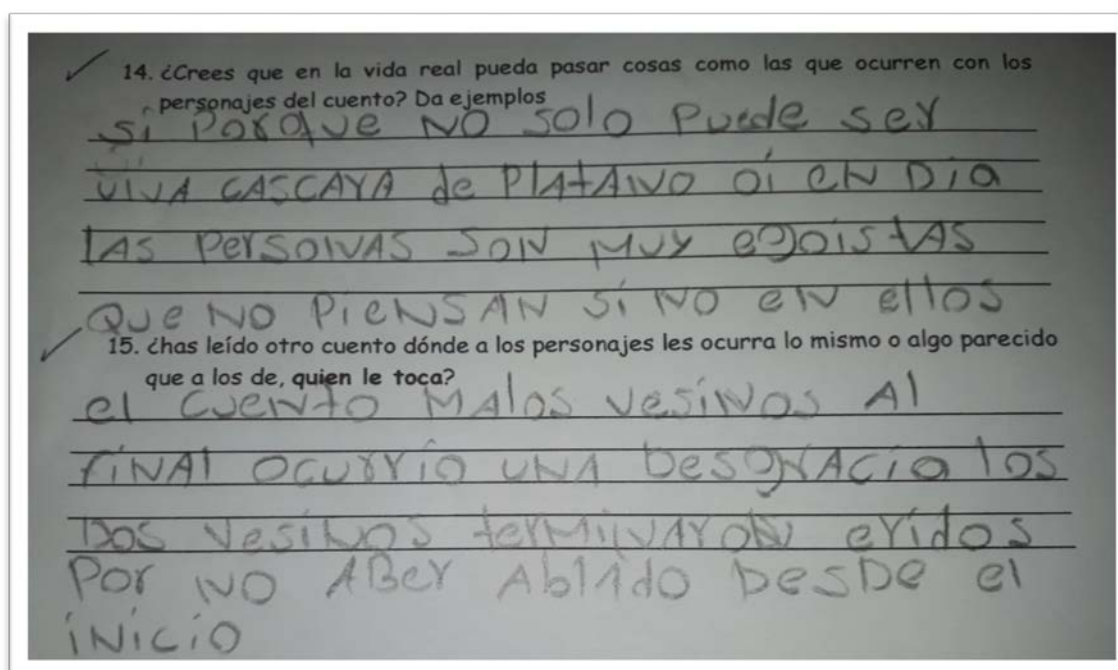 14. ¿Crees que en la vida real pueda pasar cosas como las que ocurren con los
personajes del cuento? Da ejemplos
Sí PORQUe NO solo Puede ser
UNA CASCAYA de PlAtANO oí eN DíA
lAS PerSONAS SON MUY egoistAS
QUe NO PieNSAN Sí NO eN ellos
15. ¿has leído otro cuento dónde a los personajes les ocurra lo mismo o algo parecido
que a los de, quien le toca?
el CUeNtO MAlos vesiNos Al
fiNAl OCURRió UNA DesgRACia los
Dos VesiNos terMiNARON eridos
Por NO ABer AblAdo DesDe el
iNiCiO